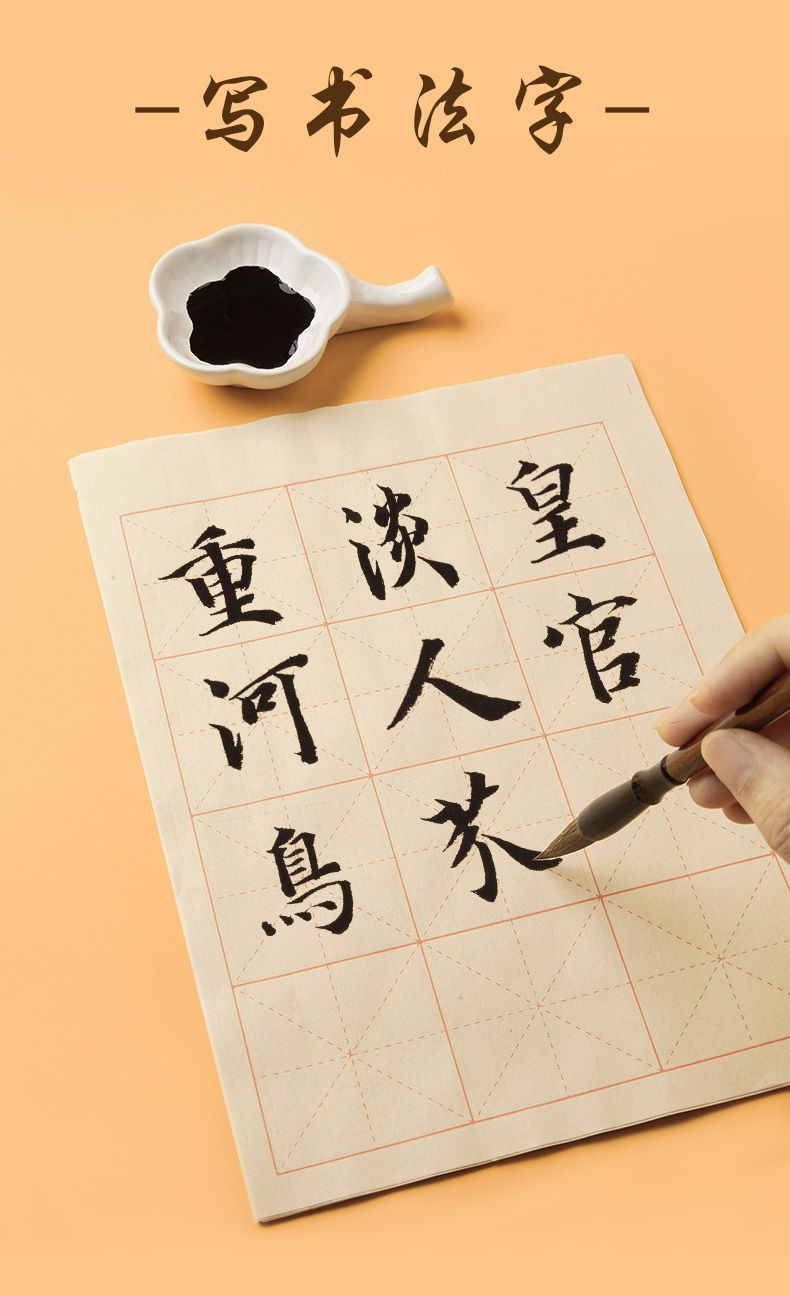 -写书法字-
重 淡 皇
河 人 官
鳥 芥